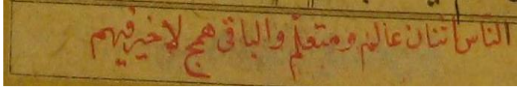 الناس اثنان عالم ومتعلم والباقی همج لا خیر فیهم